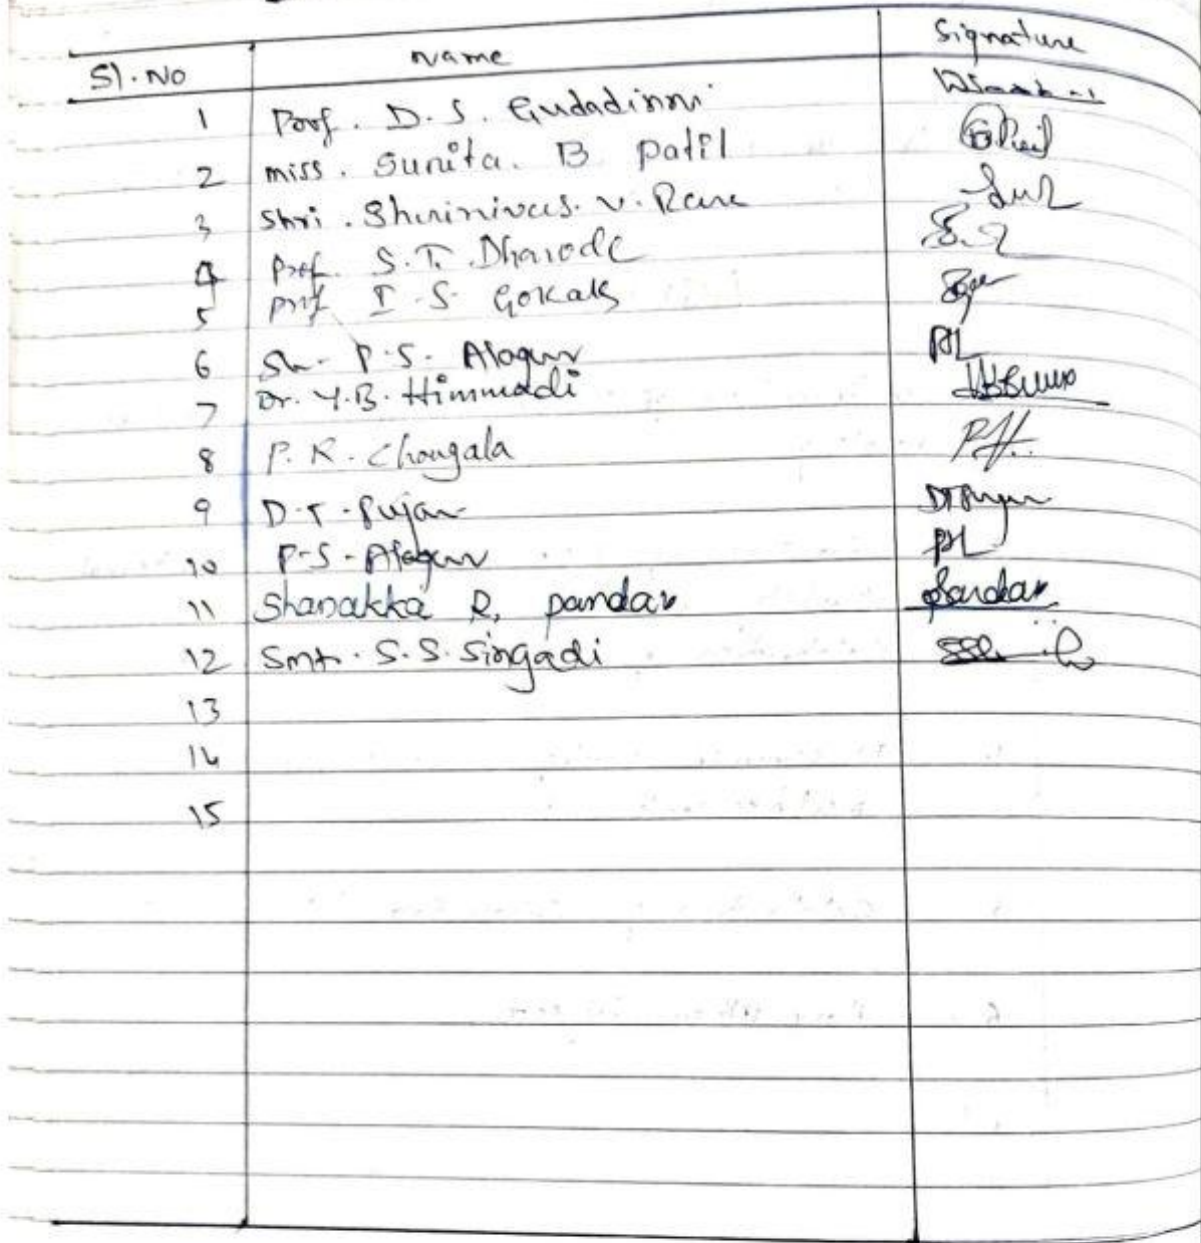 Sl. No Name Signature
1 Prof. D. S. Gudadinni
2 miss. Sunita. B patil
3 Shri. Shrinivas. V. Rane
4 Prof. S. T. Dharode
5 prof I. S. Gokak
6 Sh. P. S. Alagur
7 Dr. Y. B. Himmadi
8 P. R. Chougala
9 D. T. Pujar DTPujar
10 P-S-Alagur
11 Shanakka R. pandav pandav
12 Smt. S. S. Singadi
13
14
15